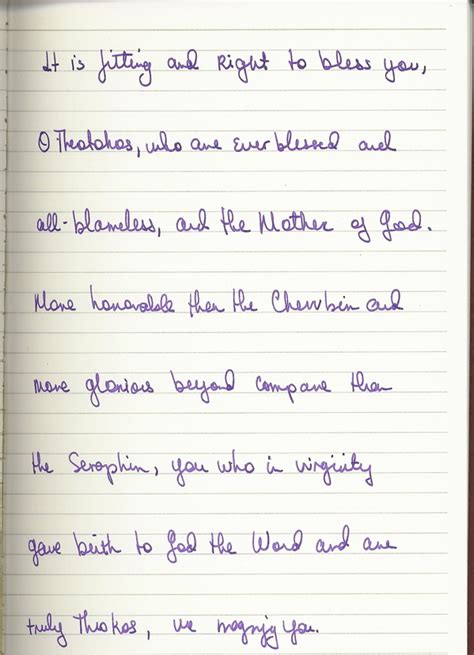 It is fitting and Right to bless you,
O Theotokos, who are ever blessed and
all-blameless, and the Mother of God.
More honorable then the Cherubin and
more glorious beyond compare than
the Seraphin, you who in virginity
gave birth to God the Word and are
truly Thokos, we magnify you.